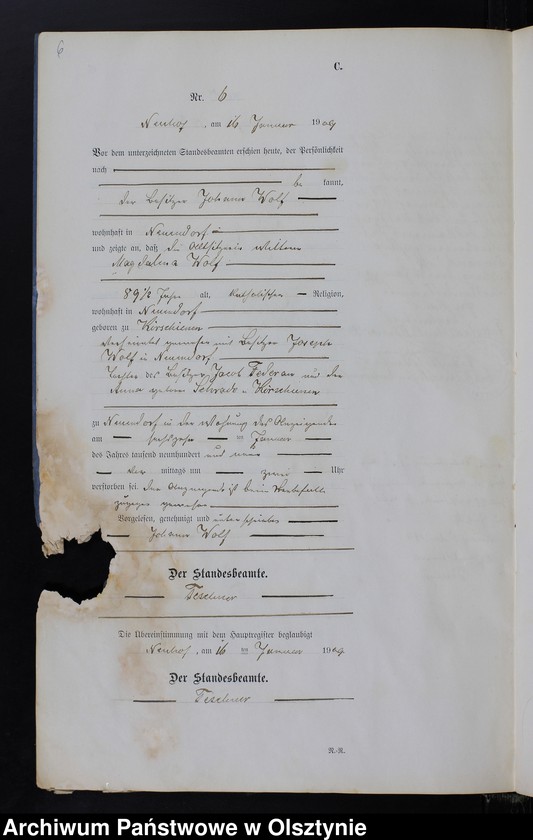 6
C.
Nr. 6
Neuhof, am 16 Januar 1909
Vor dem unterzeichneten Standesbeamten erschien heute, der Persönlichkeit
nach
be kannt,
der Besitzer Johann Wolf
wohnhaft in Neuendorf
und zeigte an, daß die Altsitzerin Witwe
Magdalena Wolf
89 1/2 Jahre alt, katholischer Religion,
wohnhaft in Neuendorf
geboren zu
verheiratet gewesen mit Besitzer Joseph
Wolf in Neuendorf
Tochter des Besitzers Jacob Federau und der
Anna geborne
zu Neuendorf in der Wohnung des Anzeigenden
am sechszehn ten Januar
des Jahres tausend neunhundert und neun
mittags um zwei Uhr
verstorben sei. Der Anzeigende ist beim Sterbefalle
zugegen gewesen
Vorgelesen, genehmigt und unterschrieben
Johann Wolf
Der Standesbeamte.
Teschner
Die Übereinstimmung mit dem Hauptregister beglaubigt
Neuhof, am 16 ten Januar 1909
Der Standesbeamte.
Teschner
N.-R.
Archiwum Państwowe w Olsztynie